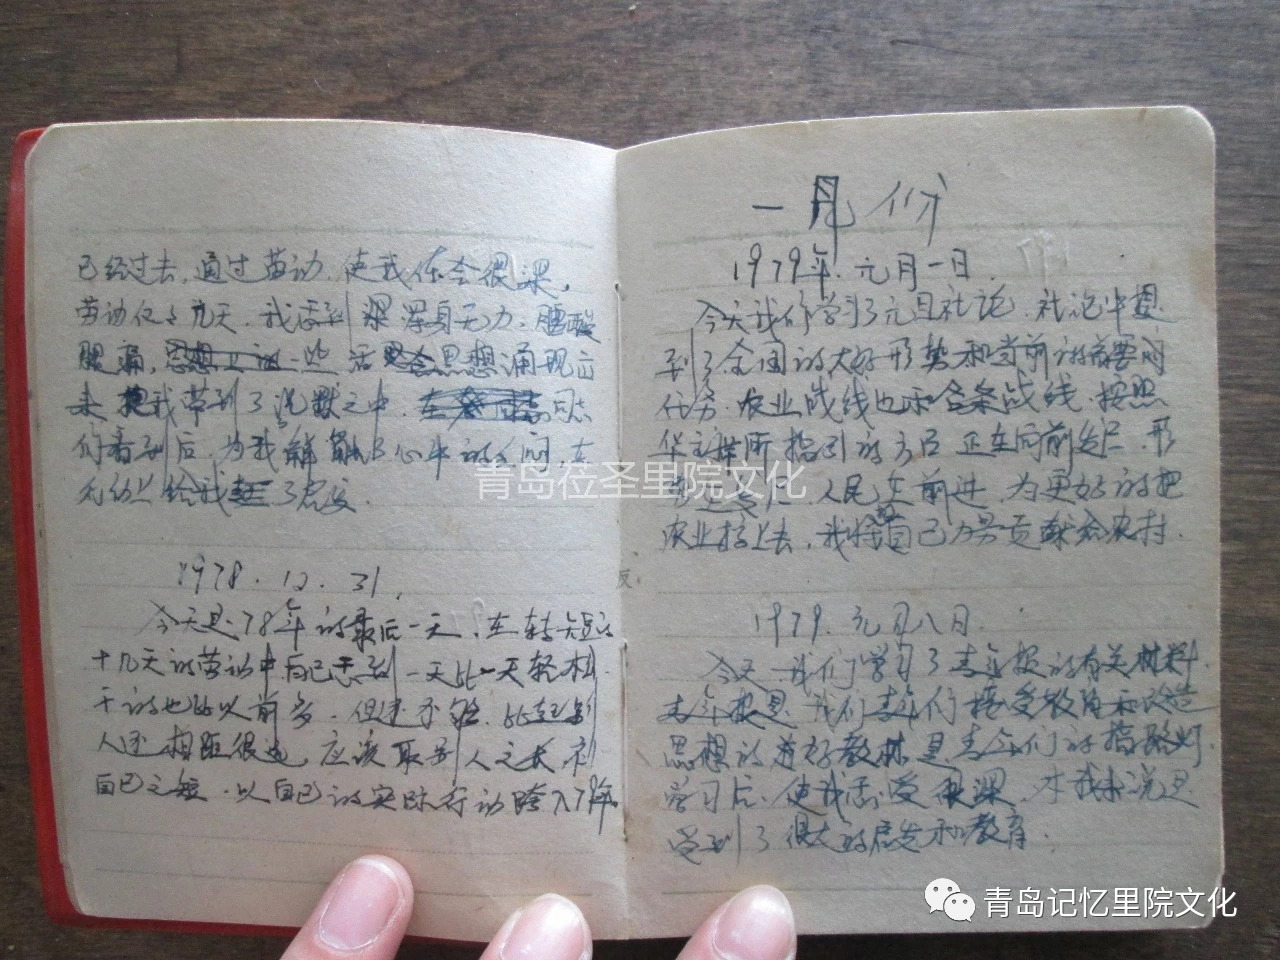 已经过去,通过劳动,使我体会很深,
劳动仅了几天,我感到浑身无力,腰酸
腿痛,思想涌现出
来 我带到了沉默之中, 同志
们看到后,为我解 了心中的
给我 了
1978.12.31.
今天是78年的最后一天,在转短的
十几天的劳动中自己感到一天比一天轻松
干的也比以前多,但还不够,比起别
人还相距很远,应该取别人之长补
自己之短,以自己的实际行动跨入79年
一月份
1979年.元月一日.
今天我们学习了元旦社论,社论中提
到了全国的大好形势和当前的首要的
任务,农业战线也和各条战线,按照
华主席所指引的方向正在向前发展,形
势在发展,人民在前进,为更好的把
农业搞上去,我将自己力量贡献给农村.
1979.元月八日.
今天,我们学习了青年报的有关材料,
青年报是我们青年们接受教育和改造
思想的最好教材,是青年们的指路灯,
学习后,使我感受很深,才我来说是
受到了很大的启发和教育.
青岛莅圣里院文化
青岛记忆里院文化